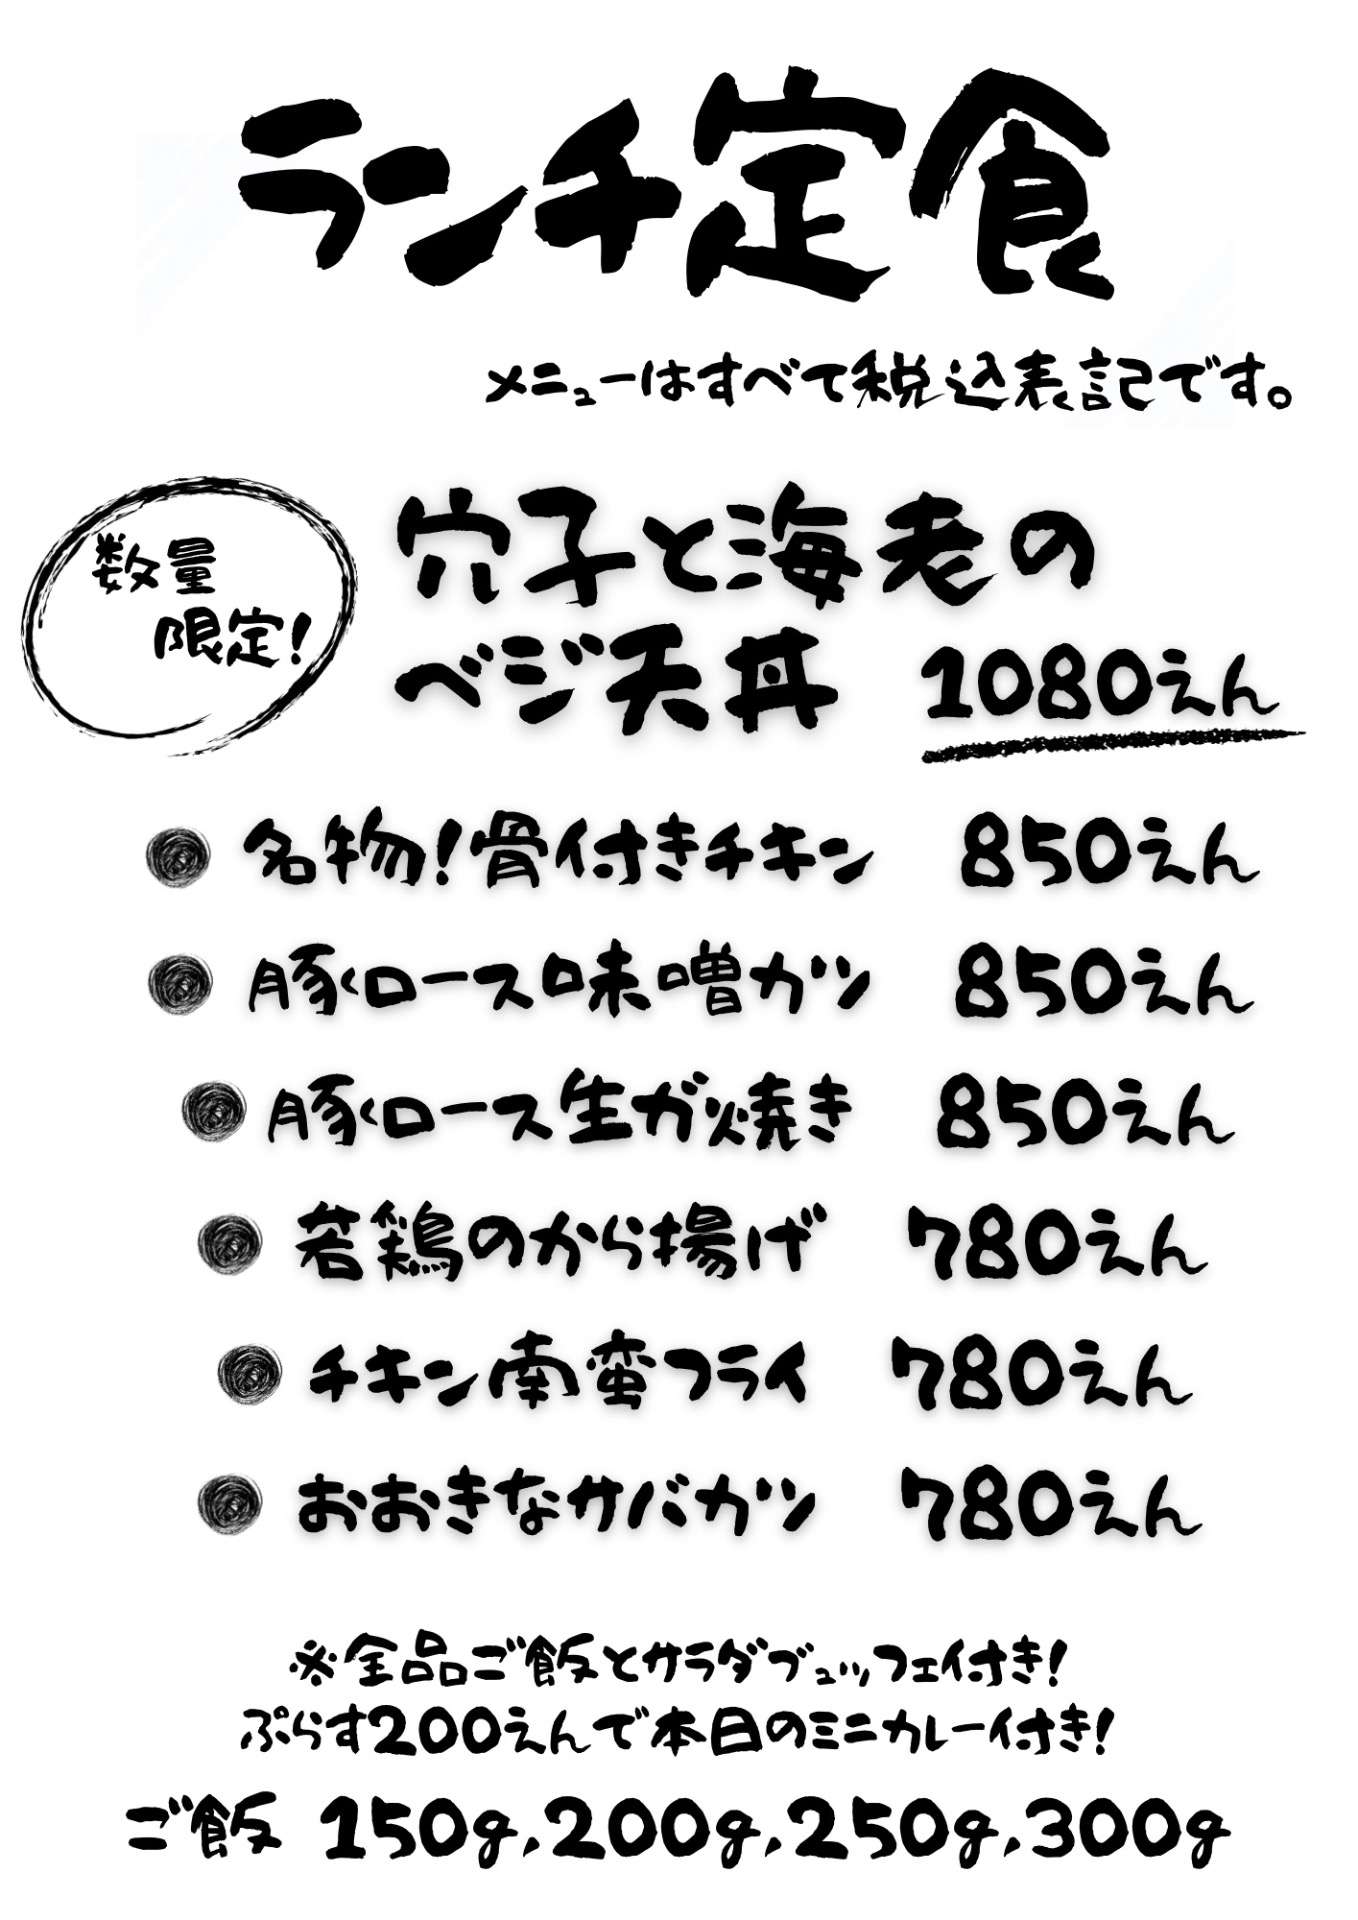 ランチ定食
メニューはすべて税込表記です。
数量
限定!
穴子と海老の
ベジ天丼 1080えん
名物!骨付きチキン 850えん
豚ロース味噌カツ 850えん
豚ロース生が焼き 850えん
若鶏のから揚げ 780えん
チキン南蛮フライ 780えん
おおきなサバカツ 780えん
※全品ご飯とサラダブュッフェイ付き!
ぷらす200えんで本日のミニカレーイ付き!
ご飯 150g,200g,250g,300g